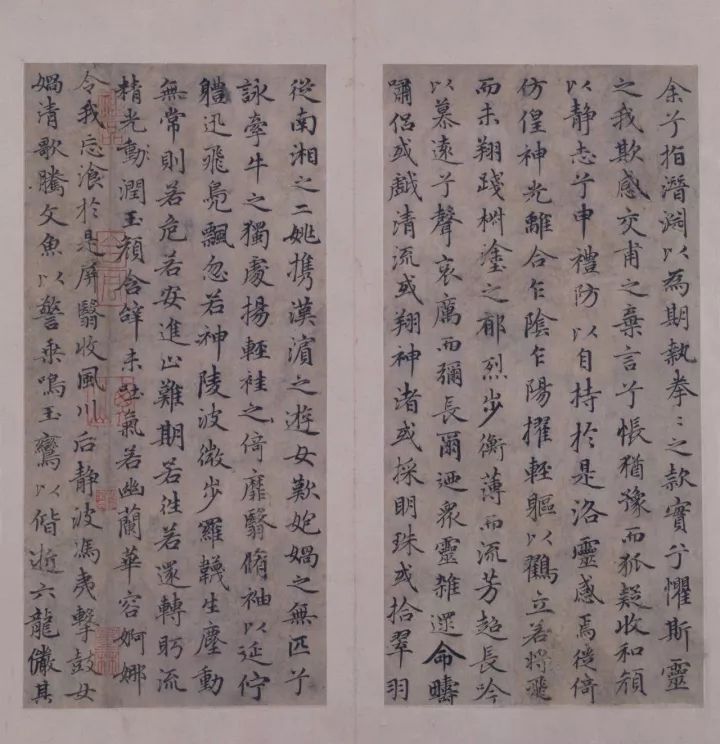 余兮指潛淵以為期執拳〻之款實兮懼斯靈
之我欺感交甫之棄言兮悵猶豫而狐疑收和顏
以靜志兮申禮防以自持於是洛靈感焉徙倚
仿偟神光離合乍陰乍陽擢輕軀以鶴立若將飛
而未翔踐椒塗之郁烈步衡薄而流芳超長吟
以慕遠兮聲哀厲而彌長爾迺衆靈雜遝命疇
嘯侶或戲清流或翔神渚或採明珠或拾翠羽
從南湘之二姚攜漢濱之遊女歎匏媧之無匹兮
詠牽牛之獨處揚輕袿之倚靡翳脩袖以延佇
軆迅飛鳧飄忽若神陵波微步羅韈生塵動
無常則若危若安進止難期若往若還轉眄流
精光動潤玉顏含辭未吐氣若幽蘭華容婀娜
令我忘飡於是屏翳收風川后靜波馮夷擊鼓女
媧清歌騰文魚以警乘鳴玉鸞以偕逝六龍儼其